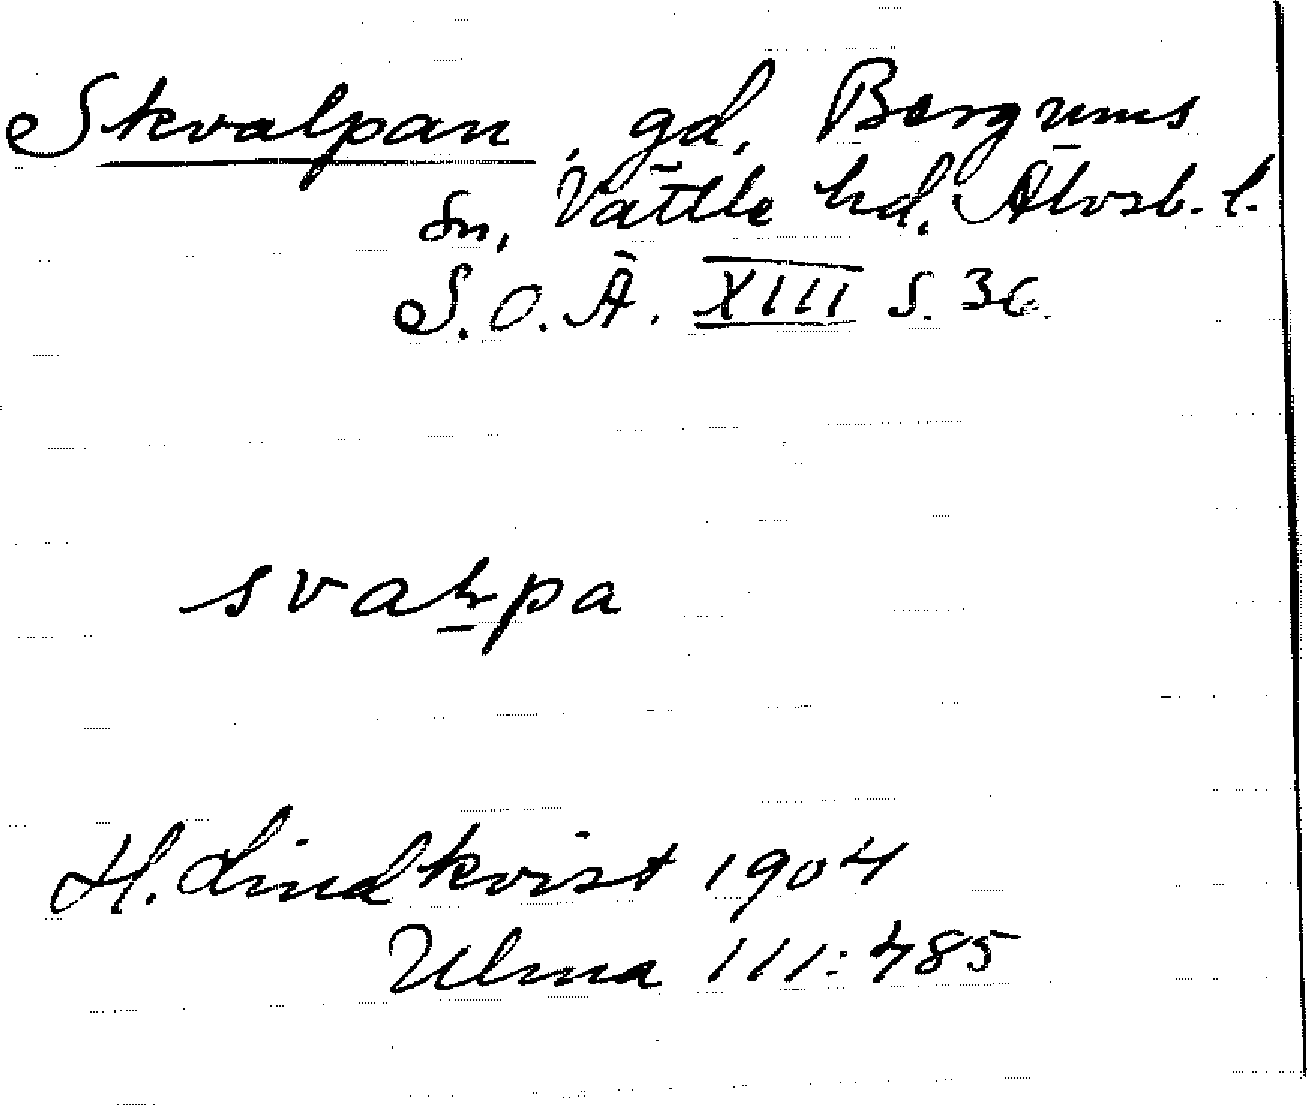 Skvalpan, gd, Bergums
sn, Vättle hd. Älvsb. l.
S. O. Ä. XIII s. 36.
svałpa
H. Lindkvist 1904
Ulma 111:485